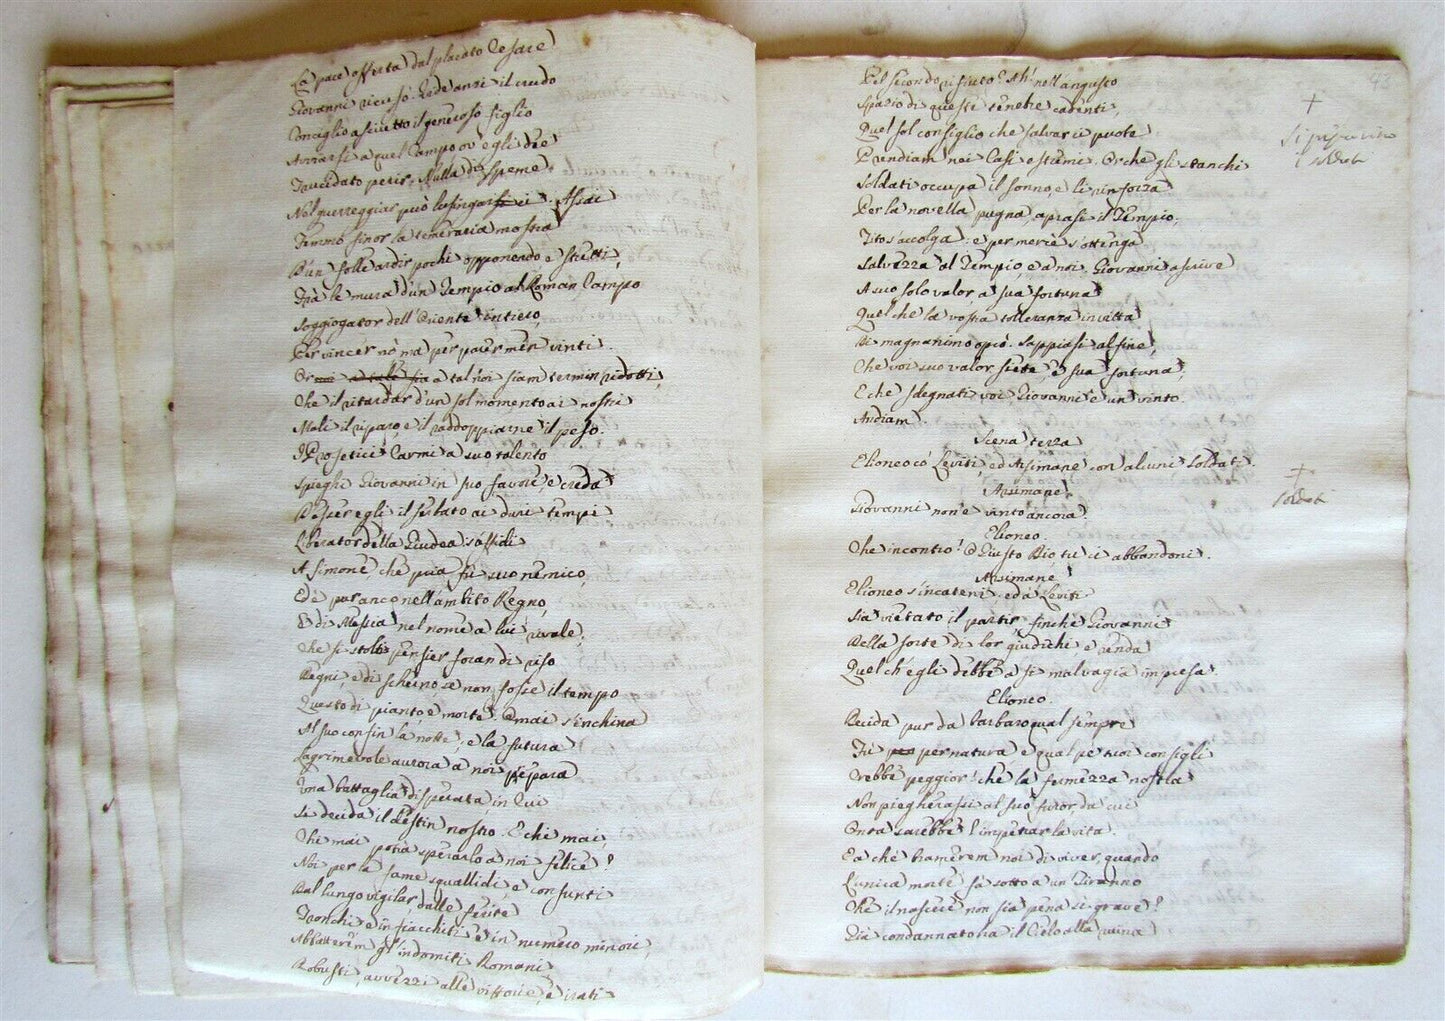 La pace offerta dal placato Cesare
Giovanni ricusò. Ed è anzi il crudo
Consiglio ascritto il generoso figlio
Avviarsi a quel Campo ov'egli dee
Trucidato perir. Nulla di speme
Nel guerreggiar può lusingarci. Assai
Femmo sinor la temeraria mostra
D'un folle ardir pochi opponendo e stretti,
Frà le mura d'un Tempio al Roman Campo
Soggiogator dell'Oriente intiero,
Per vincer nò ma per parer men vinti.
Or a tal noi siam termin ridotti,
Che il ritardar d'un sol momento ai nostri
Mali il riparo, è il raddoppiarne il peso.
I Profetici Carmi a suo talento
Spieghi Giovanni in suo favore, e creda
D'esser egli il serbato ai duri tempi
Liberator della Giudea s'affidi
A Simone, che pria fù suo nemico,
Ed è pur anco nell'ambito Regno,
E di Messia nel nome a lui rivale;
Che sì stolti pensier foran di riso
Degni, e di scherno se non fosse il tempo
Questo di pianto e morte. Omai s'inchina
Al suo confin la notte; e la futura
Lagrimevole aurora a noi prepara
Una battaglia disperata in cui
Se decida il destin nostro. E chi mai,
Chi mai potrà sperarlo a noi felice?
Noi per la fame squallidi, e consunti
Dal lungo vigilar, dalle ferite
Tronchi e infiacchiti e in numero minori,
Abbatterem gl'indomiti Romani,
Robusti, avvezzi alle vittorie, e irati
43
Del secondo rifiuto? Ah! nell'angusto
Spazio di queste tenebre cadenti,
Quel sol consiglio che salvarci puote
Prendiam noi Casi estremi. Or che gli stanchi
Soldati occupa il sonno e li rinforza
Per la novella pugna, aprasi il Tempio,
Tito s'accolga: e per mercè s'ottenga
Salvezza al Tempio, e a noi. Giovanni ascrive
A suo solo valor a sua fortuna
Quel che la vostra tolleranza invitta
Di magnanimo oprò. Sappiasi al fine,
Che voi suo valor siete, e sua fortuna,
E che sdegnati voi Giovanni è un vinto.
Andiam.
Scena terza
Elioneo có Leviti, ed Arsimane con alcuni soldati.
Arsimane
Giovanni non è vinto ancora.
Elioneo.
Che incontro! O Giusto Dio, tu ci abbandoni.
Arsimane
Elioneo s'incateni, ed a' Leviti
Sia vietato il partir finchè Giovanni
Della sorte di lor giudichi e renda
Quel ch'egli debbe a sì malvagia impresa.
Elioneo.
Decida pur da barbaro qual sempre
Fù per natura, e qual pe' tuoi consigli
Crebbe peggior: chè la fermezza nostra
Non piegherassi al suo furor da cui
Onta sarebbe l'impetrar la vita.
Ea chè bramerem noi di viver, quando
L'unica morte fà sotto a un Tiranno
Chè il nascere non sia pena sì grave?
Già condannato ha il Cielo alla ruina
+
+
soldati